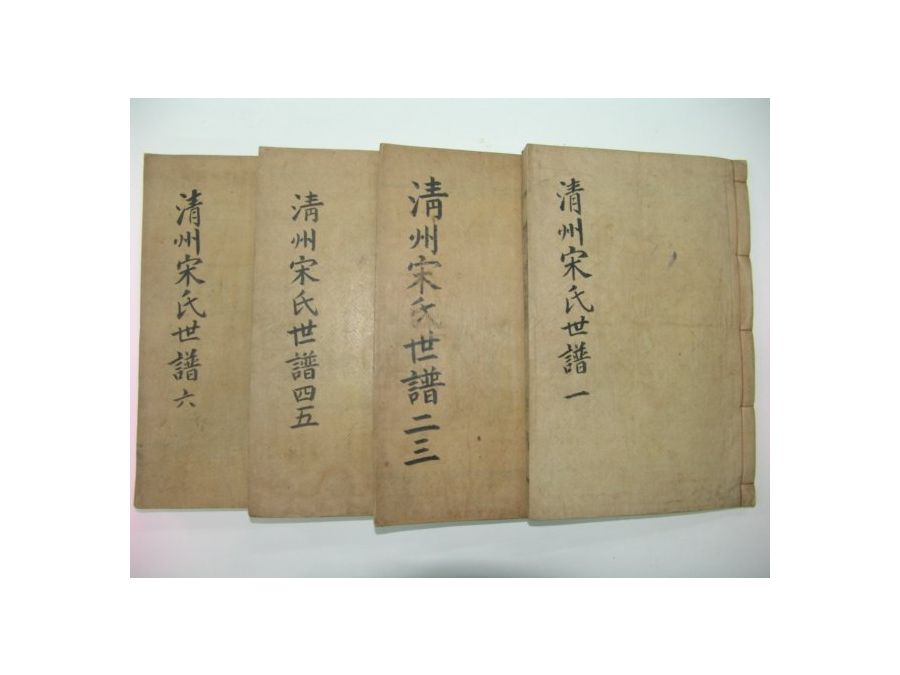 清州宋氏世譜 一
清州宋氏世譜 二三
清州宋氏世譜 四五
清州宋氏世譜 六